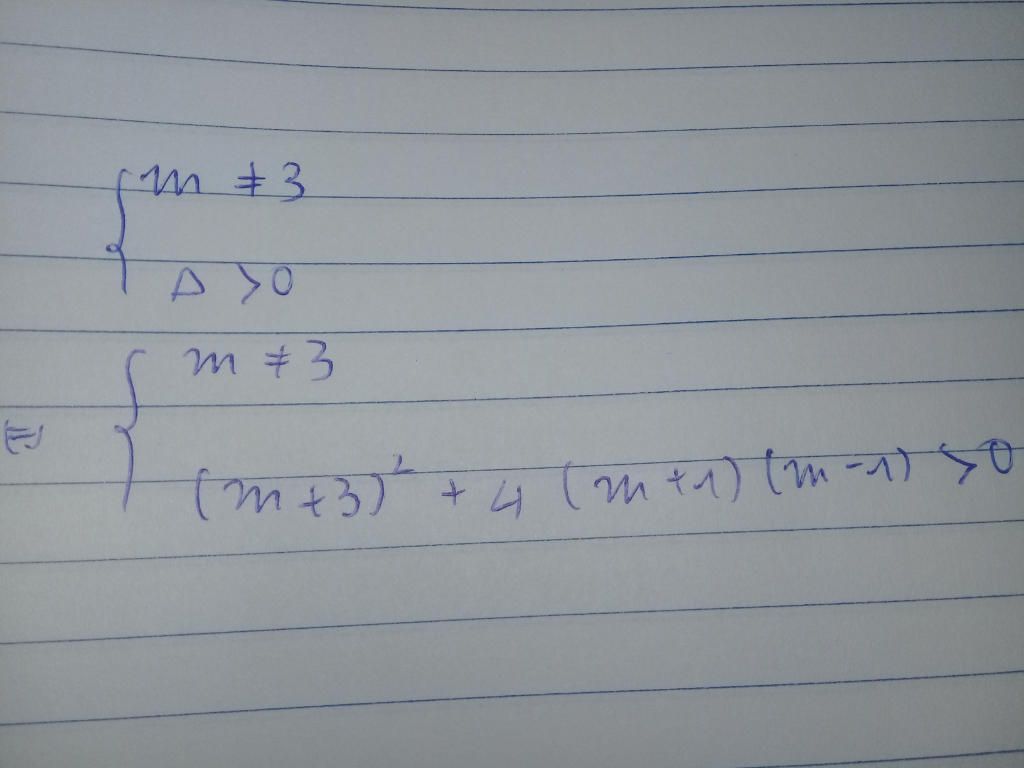 { m ≠ 3
Δ > 0
⇔ { m ≠ 3
(m + 3)² + 4 (m + 1) (m - 1) > 0